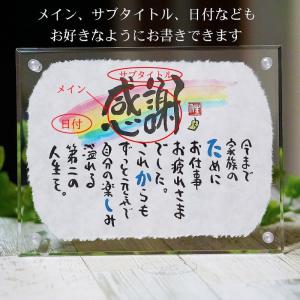 メイン、サブタイトル、日付なども
お好きなようにお書きできます
サブタイトル
メイン
日付
感謝
今まで
家族の
ために
お仕事
お疲れさま
でした。
これからも
ずっと元気で
自分の楽しみ
溢れる
第二の
人生を。